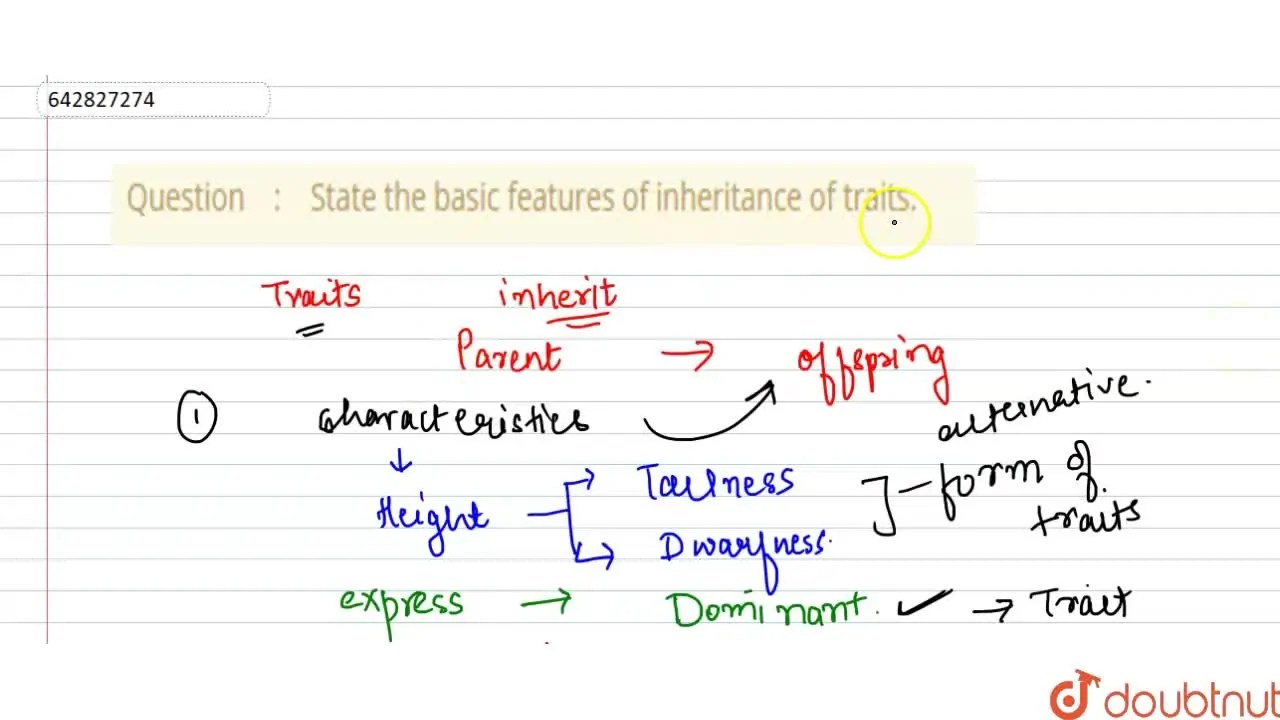 642827274
Question : State the basic features of inheritance of traits.
Traits inherit
Parent → offspring
① characteristics
alternative.
↓ Tallness
Height form of traits
Dwarfness.
express → Dominant. ✓ → Trait
doubtnut